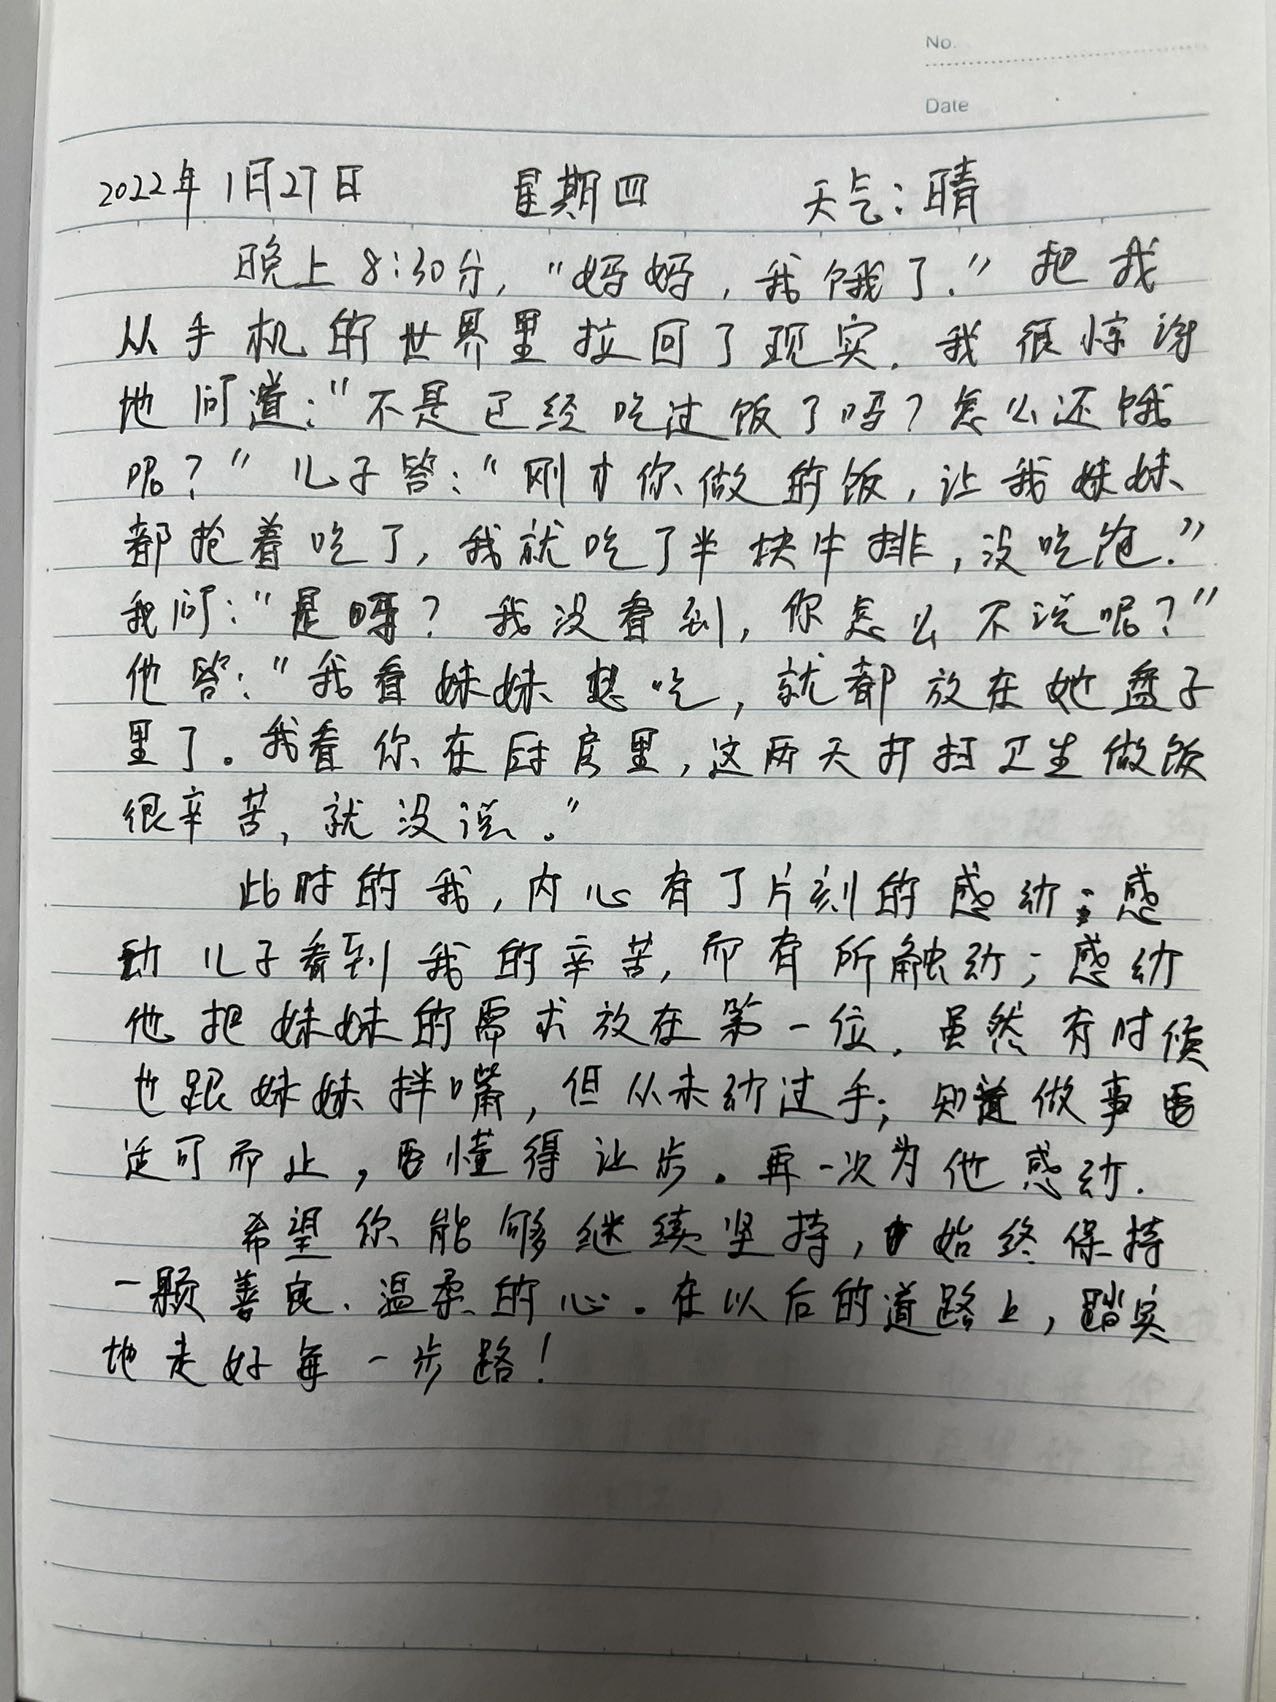 No.
Date
2022年1月27日 星期四 天气:晴
晚上8:30分,“妈妈,我饿了.”把我
从手机的世界里拉回了现实.我很惊讶
地问道:“不是已经吃过饭了吗?怎么还饿
呢?”儿子答:“刚才你做的饭,让我妹妹
都抢着吃了,我就吃了半块牛排,没吃饱.”
我问:“是吗?我没看到,你怎么不说呢?”
他答:“我看妹妹想吃,就都放在她盘子
里了。我看你在厨房里,这两天打扫卫生做饭
很辛苦,就没说。”
此时的我,内心有了片刻的感动;感
动儿子看到我的辛苦,而有所触动;感动
他把妹妹的需求放在第一位.虽然有时候
也跟妹妹拌嘴,但从未动过手;知道做事要
适可而止,要懂得让步.再一次为他感动.
希望你能够继续坚持,始终保持
一颗善良、温柔的心.在以后的道路上,踏实
地走好每一步路!